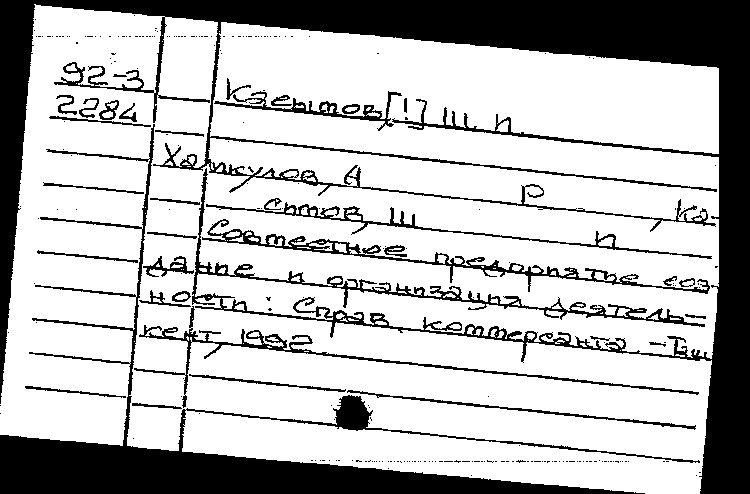 92-3
2284
Касымов, [!] Ш. П.
Халикулов, А Р , Ка-
симов, Ш П
Совместное предприятие соз-
дание и организация деятель-
ности: Справ. коммерсанта. - Таш
кент, 1992